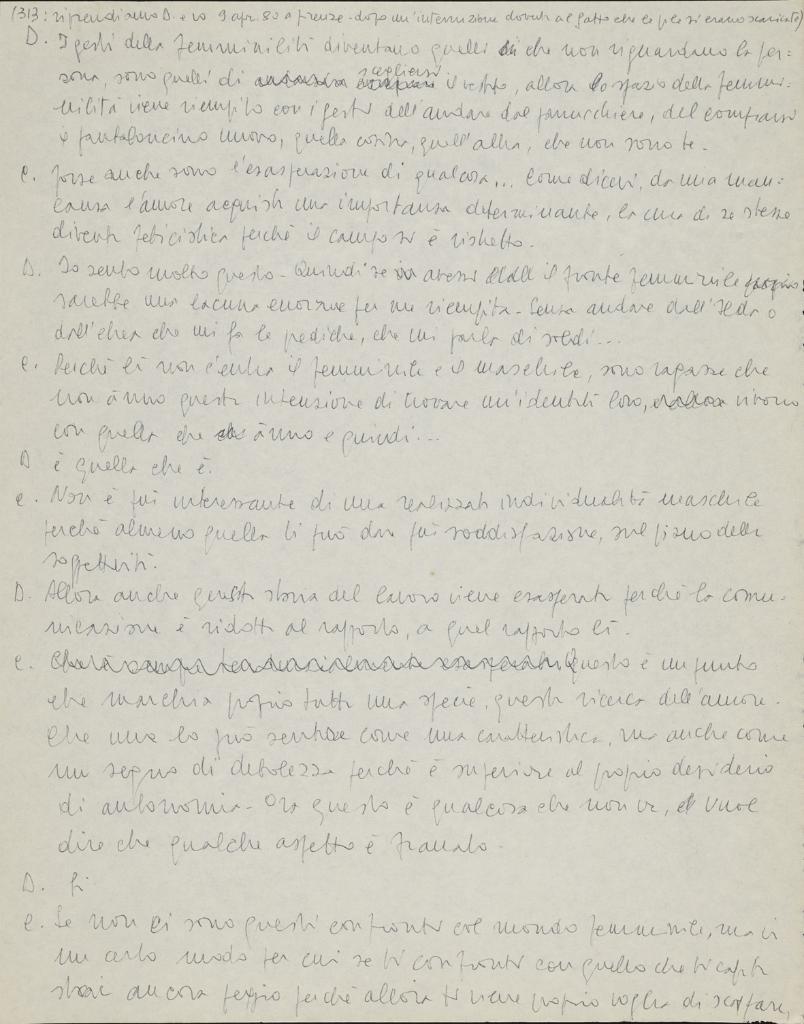 (313: riprendiamo D. e io 9 apr. 80 a Firenze - dopo un'interruzione dovuta al fatto che le pile si erano scaricate)
D. I gesti della femminilità diventano quelli che non riguardano la per-
sona, sono quelli di scegliersi il vestito, allora lo spazio della femmi-
nilità viene riempito con i gesti dell'andare dal parrucchiere, del comprarsi
il pantaloncino nuovo, quella cosina, quell'altra, che non sono te.
C. Forse anche sono l'esasperazione di qualcosa... Come dicevi, da una man-
canza l'amore acquista una importanza determinante, la cura di se stesse
diventa feticistica perché il campo si è ristretto.
D. Io sento molto questo. Quindi se avessi il fronte femminile
sarebbe una lacuna enorme per me riempita. Senza andare dall'Ilda o
dall'altra che mi fa le prediche, che mi parla di soldi...
C. Perché lì non c'entra il femminile e il maschile, sono ragazze che
non ànno questa intenzione di trovare un'identità loro, vivono
con quella che ànno e quindi...
D è quella che è.
C. Non è più interessante di una realizzata individualità maschile
perché almeno quella ti può dare più soddisfazione, sul piano della
soggettività.
D. Allora anche questa storia del lavoro viene esasperata perché la comu-
nicazione è ridotta al rapporto, a quel rapporto lì.
C. Questo è un punto
che marchia proprio tutta una specie, questa ricerca dell'amore.
Che una lo può sentire come una caratteristica, ma anche come
un segno di debolezza perché è superiore al proprio desiderio
di autonomia. Ora questo è qualcosa che non va, vuol
dire che qualche aspetto è
D. Sì
C. Se non ci sono questi confronti col mondo femminile, ma in
un certo modo per cui se ti confronti con quello che ti capita
stai ancora peggio perché allora ti viene proprio voglia di scappare,